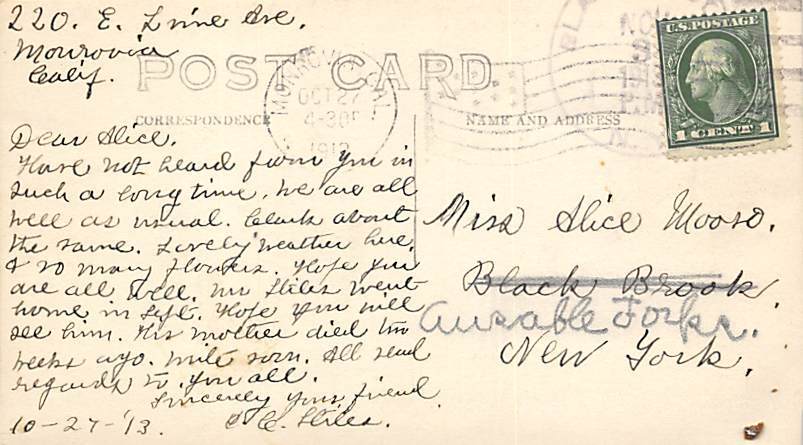 220. E. Lime Ave.
Monrovia
Calif.
POST CARD
MONROVIA, CAL.
OCT 27
4-30P
1913
NOV
U.S. POSTAGE
1 CENT 1
CORRESPONDENCE
NAME AND ADDRESS
Dear Alice.
Have not heard from you in
such a long time. We are all
well as usual. Clark about
the same. Lovely weather here,
& so many flowers. Hope you
are all well. Mr Stiles went
home in Sept. Hope you will
see him. His mother died two
weeks ago. Write soon. All send
regards to you all.
Sincerely your friend
C. Stiles.
10-27-'13.
Miss Alice Mooso.
Black Brook,
Ausable Forks.
New York.